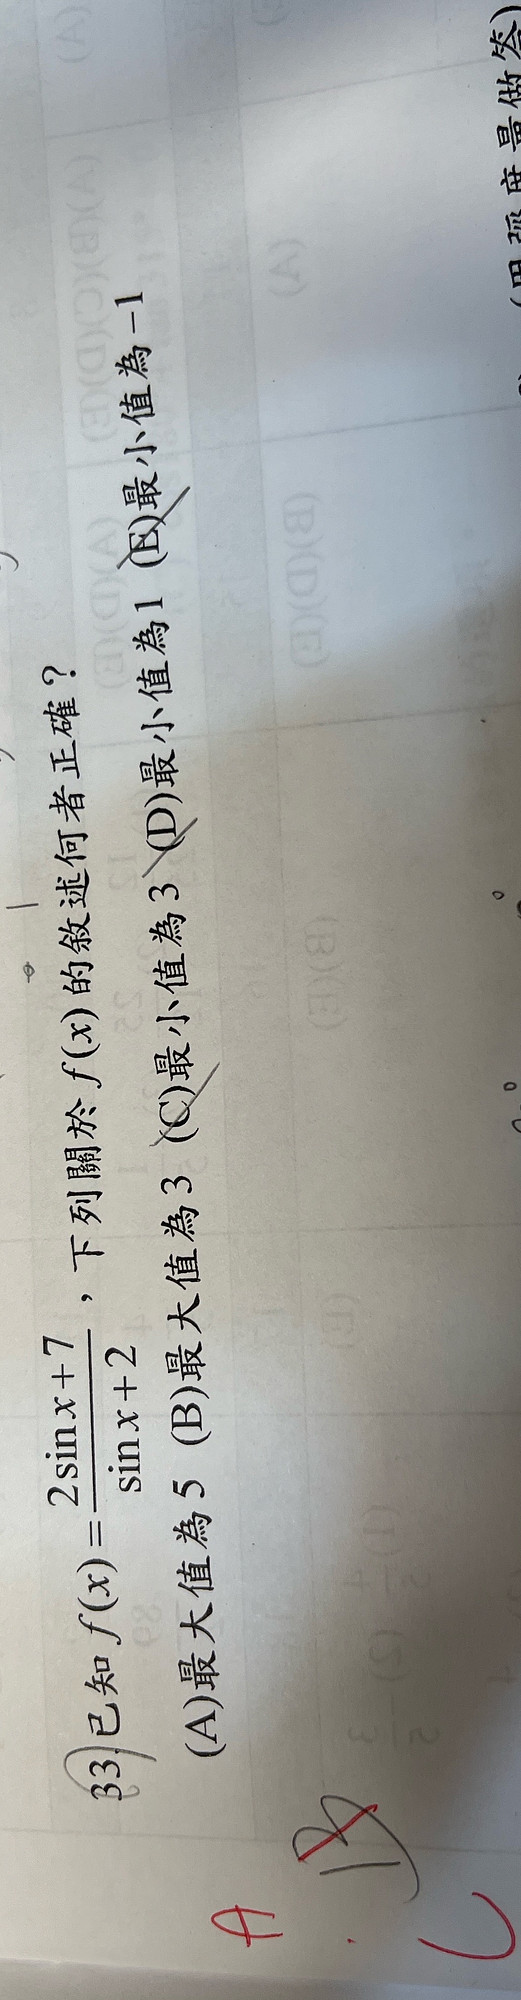 33. 已知 f(x) = \frac{2sinx+7}{sinx+2}，下列關於 f(x) 的敘述何者正確？
(A)最大值為5 (B)最大值為3 (C)最小值為3 (D)最小值為1 (E)最小值為−1
A
B
(用弧度量做答)
(A)
(A)(B)(C)(D)(E)
(A)(D)(E)
(A)
(B)(D)(E)
(B)(E)
(E)